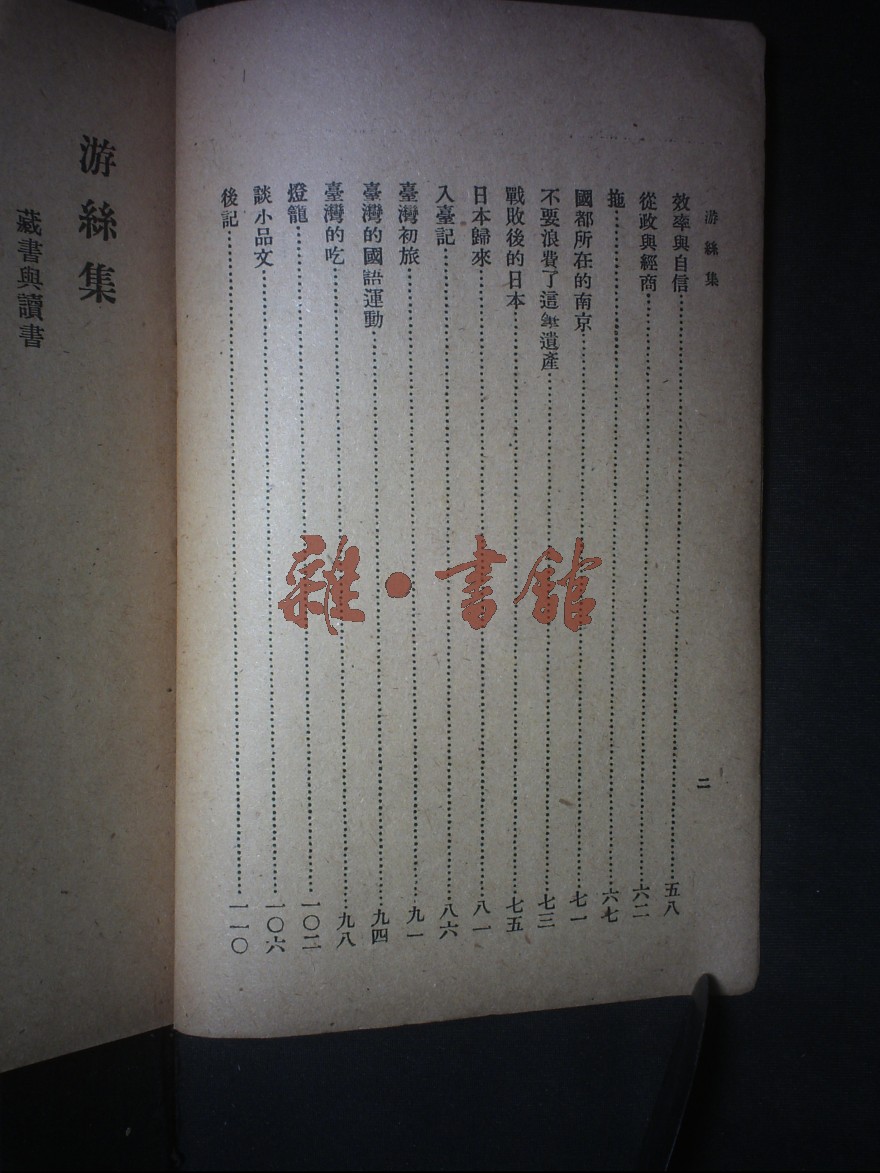 游絲集
二
效率與自信五八
從政與經商六二
拖六七
國都所在的南京七一
不要浪費了這筆遺產七三
戰敗後的日本七五
日本歸來八一
入臺記八六
臺灣初旅九一
臺灣的國語運動九四
臺灣的吃九八
燈籠一〇二
談小品文一〇六
後記一一〇
游絲集
藏書與讀書
雜·書館